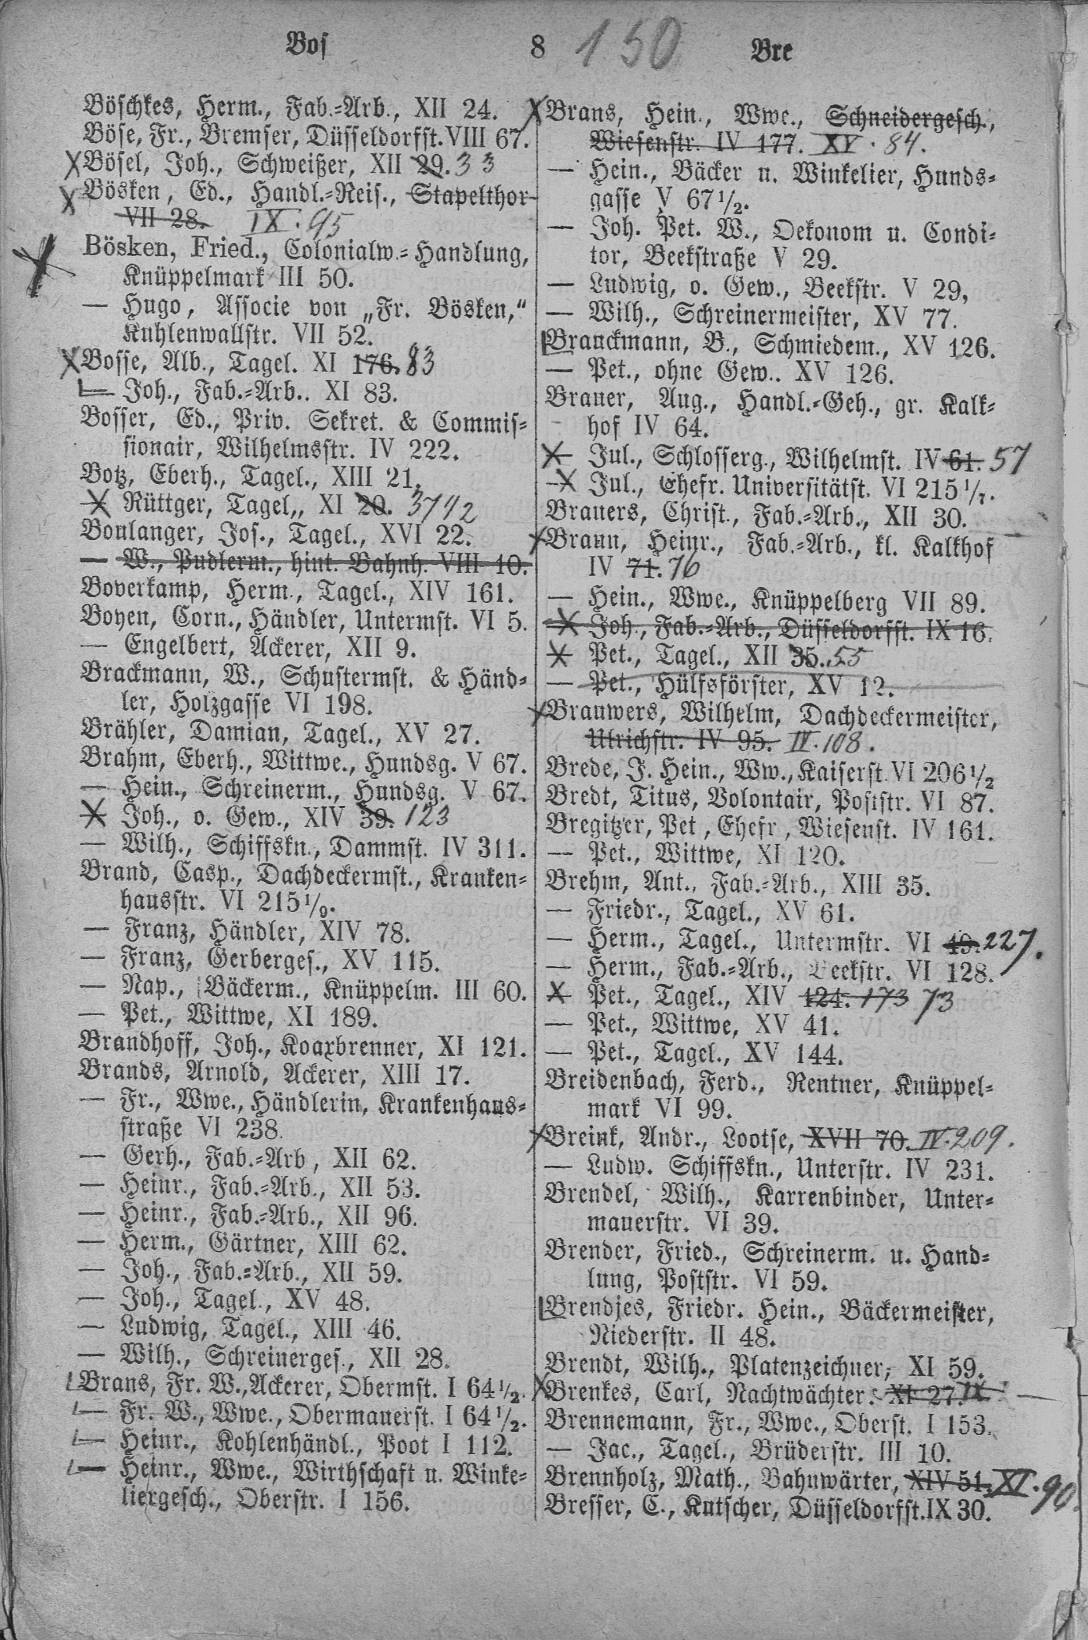 Bos 8 150 Bre
Böschkes, Herm., Fab.-Arb., XII 24.
Böse, Fr., Bremser, Düsseldorfst. VIII 67.
Bösel, Joh., Schweißer, XII 29. 33
Bösken, Ed., Handl.-Reis., Stapelthor
VII 28. IX. 95
Bösken, Fried., Colonialw.-Handlung,
Knüppelmark III 50.
— Hugo, Associe von „Fr. Bösken,“
Kuhlenwallstr. VII 52.
Bosse, Alb., Tagel. XI 176. 83
— Joh., Fab.-Arb.. XI 83.
Bosser, Ed., Priv. Sekret. & Commis-
sionair, Wilhelmsstr. IV 222.
Botz, Eberh., Tagel., XIII 21.
— Rüttger, Tagel,, XI 20. 3742
Boulanger, Jos., Tagel., XVI 22.
— W., Pudlerm., hint. Bahnh. VIII 10.
Boverkamp, Herm., Tagel., XIV 161.
Boyen, Corn., Händler, Untermst. VI 5.
— Engelbert, Ackerer, XII 9.
Brackmann, W., Schustermst. & Händ-
ler, Holzgasse VI 198.
Brähler, Damian, Tagel., XV 27.
Brahm, Eberh., Wittwe., Hundsg. V 67.
— Hein., Schreinerm., Hundsg. V 67.
— Joh., o. Gew., XIV 39. 123
— Wilh., Schiffskn., Dammst. IV 311.
Brand, Casp., Dachdeckermst., Kranken-
hausstr. VI 215 1/2.
— Franz, Händler, XIV 78.
— Franz, Gerberges., XV 115.
— Nap., Bäckerm., Knüppelm. III 60.
— Pet., Wittwe, XI 189.
Brandhoff, Joh., Koaxbrenner, XI 121.
Brands, Arnold, Ackerer, XIII 17.
— Fr., Wwe., Händlerin, Krankenhaus-
straße VI 238.
— Gerh., Fab.-Arb, XII 62.
— Heinr., Fab.-Arb., XII 53.
— Heinr., Fab.-Arb., XII 96.
— Herm., Gärtner, XIII 62.
— Joh., Fab.-Arb., XII 59.
— Joh., Tagel., XV 48.
— Ludwig, Tagel., XIII 46.
— Wilh., Schreinerges., XII 28.
Brans, Fr. W., Ackerer, Obermst. I 64 1/2.
— Fr. W., Wwe., Obermauerst. I 64 1/2.
— Heinr., Kohlenhändl., Poot I 112.
— Heinr., Wwe., Wirthschaft u. Winke-
liergesch., Oberstr. I 156.
Brans, Hein., Wwe., Schneidergesch.,
Wiesenstr. IV 177. XV. 84.
— Hein., Bäcker u. Winkelier, Hunds-
gasse V 67 1/2.
— Joh. Pet. W., Oekonom u. Condi-
tor, Beekstraße V 29.
— Ludwig, o. Gew., Beekstr. V 29,
— Wilh., Schreinermeister, XV 77.
Branckmann, B., Schmiedem., XV 126.
— Pet., ohne Gew.. XV 126.
Brauer, Aug., Handl.-Geh., gr. Kalk-
hof IV 64.
— Jul., Schlosserg., Wilhelmst. IV 61. 57
— Jul., Ehefr. Universitätst. VI 215 1/2.
Brauers, Christ., Fab.-Arb., XII 30.
Braun, Heinr., Fab.-Arb., kl. Kalkhof
IV 71. 76
— Hein., Wwe., Knüppelberg VII 89.
— Joh., Fab.-Arb., Düsseldorfst. IX 16.
— Pet., Tagel., XII 35. 55
— Pet., Hülfsförster, XV 12.
Brauwers, Wilhelm, Dachdeckermeister,
Ulrichstr. IV 95. IV. 108.
Brede, J. Hein., Ww., Kaiserst. VI 206 1/2
Bredt, Titus, Volontair, Poststr. VI 87.
Bregitzer, Pet, Ehefr, Wiesenst. IV 161.
— Pet., Wittwe, XI 120.
Brehm, Ant., Fab.-Arb., XIII 35.
— Friedr., Tagel., XV 61.
— Herm., Tagel., Untermstr. VI 49. 227.
— Herm., Fab.-Arb., Beekstr. VI 128.
— Pet., Tagel., XIV 124. 173 73
— Pet., Wittwe, XV 41.
— Pet., Tagel., XV 144.
Breidenbach, Ferd., Rentner, Knüppel-
mark VI 99.
Breink, Andr., Lootse, XVII 70. IV. 209.
— Ludw. Schiffskn., Unterstr. IV 231.
Brendel, Wilh., Karrenbinder, Unter-
mauerstr. VI 39.
Brender, Fried., Schreinerm. u. Hand-
lung, Poststr. VI 59.
Brendjes, Friedr. Hein., Bäckermeister,
Niederstr. II 48.
Brendt, Wilh., Platenzeichner, XI 59.
Brenkes, Carl, Nachtwächter. XI 27. IX
Brennemann, Fr., Wwe., Oberst. I 153.
— Jac., Tagel., Brüderstr. III 10.
Brennholz, Math., Bahnwärter, XIV 51. XI. 90.
Bresser, C., Kutscher, Düsseldorfst. IX 30.